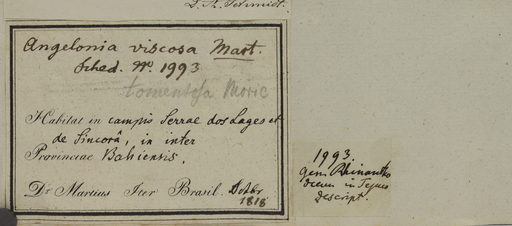 D. A. Schmidt.
Angelonia viscosa Mart.
Sched. No. 1993
tomentosa Moric
Habitat in campis Serrae dos Lages et
de Sincorâ, in inter
Provinciae Bahiensis.
Dr Martius Iter Brasil. Dobr
1818
1993.
gen. Rhinantho
descript.